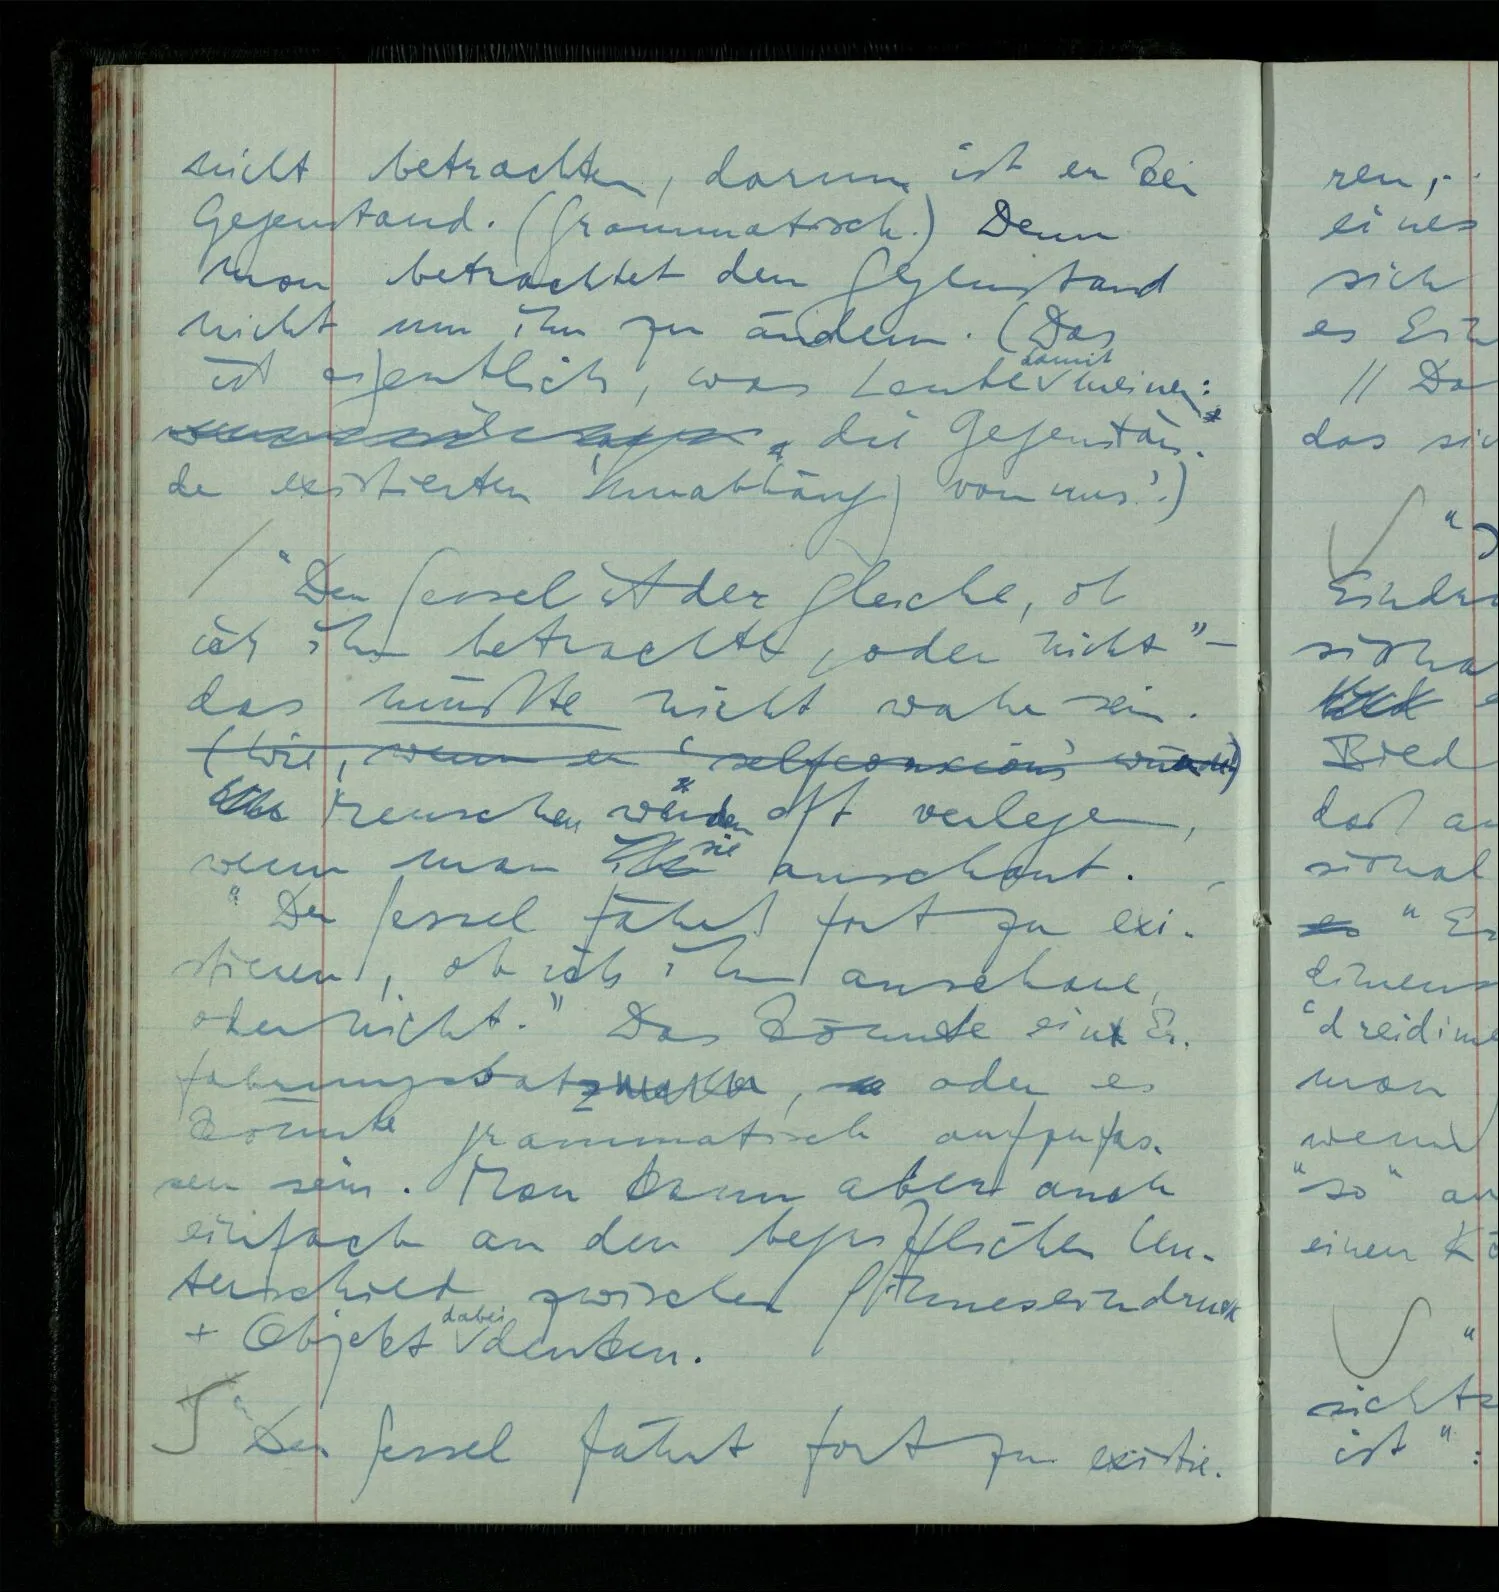 nicht betrachten, darum ist er kein
Gegenstand. (Grammatisch.) Denn
man betrachtet den Gegenstand
nicht um ihn zu ändern. (Das
damit
ist eigentlich, was Leute meinen:
die Gegenstän-
de existierten 'unabhängig von uns'.)
"Der Sessel ist der gleiche, ob
ich ihn betrachte, oder nicht" –
das müßte nicht wahr sein.
(Wie, wenn er 'selfconscious' würde)
Menschen werden oft verlegen,
sie
wenn man anschaut.
"Der Sessel fährt fort zu exi-
stieren, ob ich ihn anschaue,
oder nicht." Das könnte ein Er-
fahrungssatz, oder es
könnte grammatisch aufzufas-
sen sein. Man kann aber auch
einfach an den begrifflichen Un-
terschied zwischen Sinneseindruck
dabei
+ Objekt denken.
"Der Sessel fährt fort zu existie-
ren,
eines
sich
es
// Da
das sic
"
Eindru
siona
Bild
daß an
sional
es "
dimens
"dreidime
man
wenn
"so" au
einen Kö
"
sichts
ist":